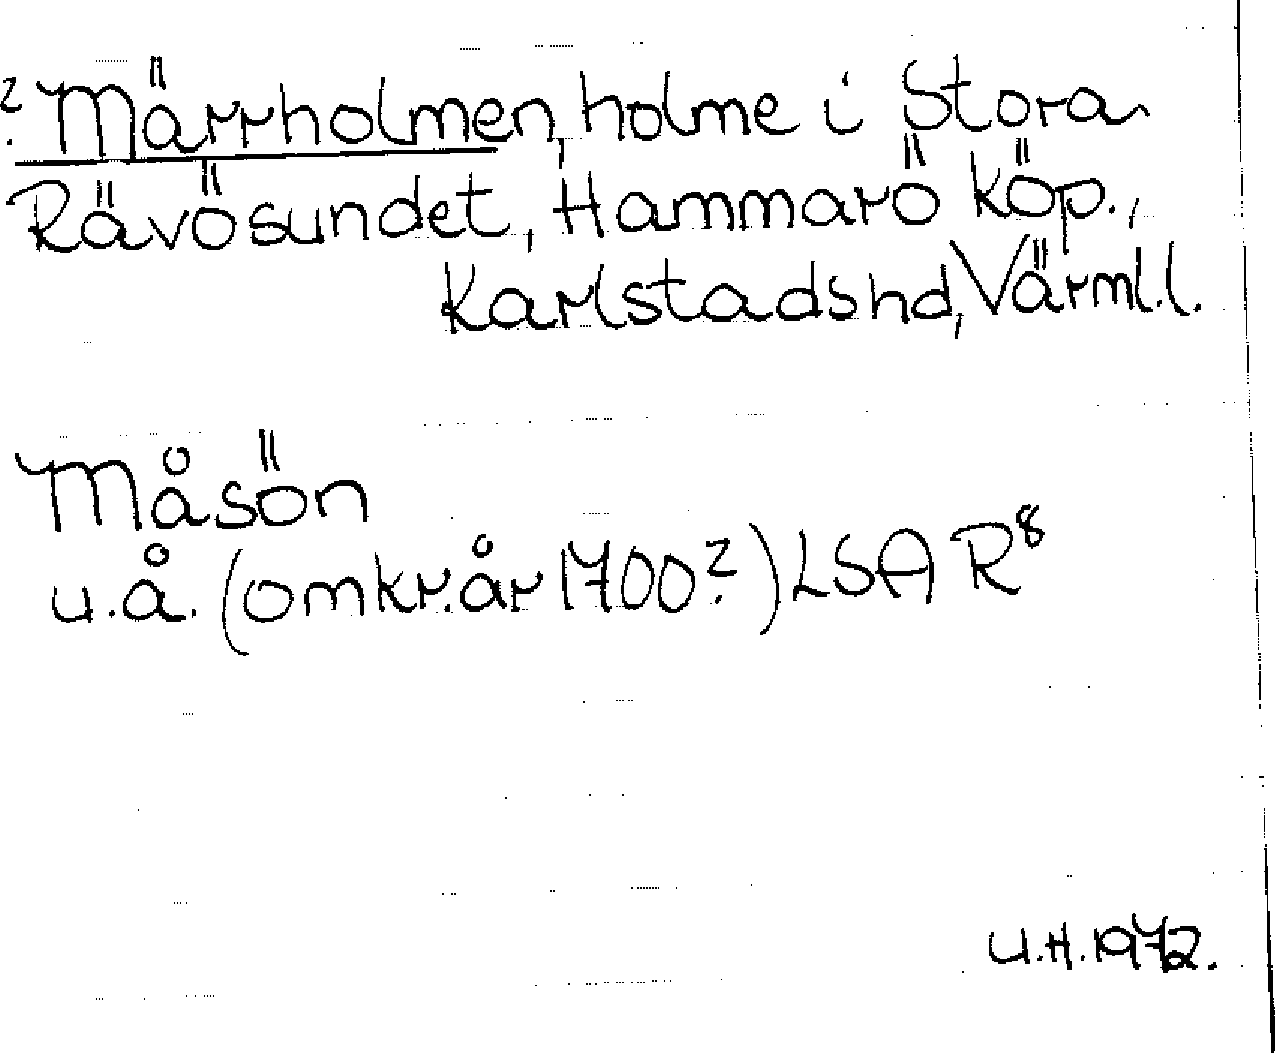 ? Märrholmen, holme i Stora
Rävösundet, Hammarö köp.,
Karlstadshd, Värml.l.
Måsön
u.å. (omkr. år 1700?) LSA R8
U.H. 1972.